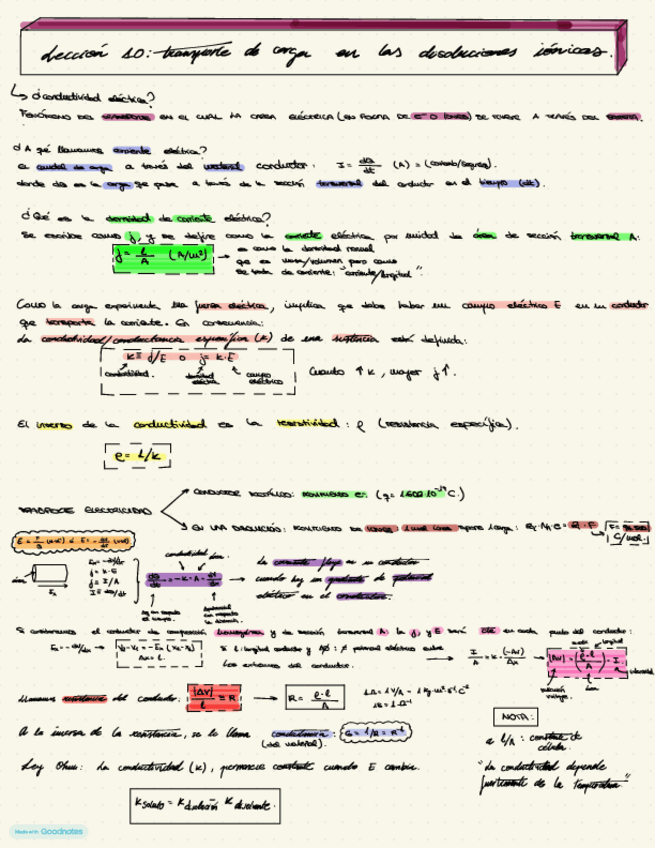 Lección 10: transporte de carga en las disoluciones iónicas.
¿Conductividad eléctrica?
FENÓMENO DEL TRANSPORTE EN EL CUAL LA CARGA ELÉCTRICA (EN FORMA DE e- O IONES) SE MUEVE A TRAVÉS DEL SISTEMA.
¿A qué llamamos corriente eléctrica?
El caudal de carga a través del material conductor: I = dQ/dt (A) = (coulomb/segundo).
donde dQ es la carga que pasa a través de la sección transversal del conductor en el tiempo (dt).
¿Qué es la densidad de corriente eléctrica?
Se escribe como j, y se define como la corriente eléctrica por unidad de área de sección transversal A:
j = I/A (A/m²) → es como la densidad normal
que es masa/volumen pero como
se trata de corriente: "corriente/longitud".
Como la carga experimenta una fuerza eléctrica, implica que debe haber un campo eléctrico E en un conductor
que transporta la corriente. En consecuencia:
La conductividad/conductancia específica (K) de una sustancia está definida:
K ≡ j/E o j = K·E
conductividad. densidad eléctrica campo eléctrico
Cuanto ↑ K, mayor j ↑.
El inverso de la conductividad es la resistividad: ρ (resistencia específica).
ρ = 1/K
TRANSPORTE ELECTRICIDAD
CONDUCTOR METÁLICO: MOVIMIENTO e-. (q = 1.602·10⁻¹⁹ C.)
EN UNA DISOLUCIÓN: MOVIMIENTO DE IONES:
conductividad área
La corriente fluye en un conductor
cuando hay un gradiente de potencial
eléctrico en el conductor.
Si consideramos el conductor de composición homogénea y de sección transversal A, la j y E será cte en cada punto del conductor:
Si l: longitud conductor y Δφ: ≠ potencial eléctrico entre
los extremos del conductor.
I/A = K·(-ΔV)/Δx → |ΔV| = (ρ·l/A)·I
Llamamos resistencia del conductor: |ΔV|/I = R → R = ρ·l/A
NOTA:
A la inversa de la resistencia, se le llama conductancia: G = 1/R = R⁻¹
(del material).
a l/A: constante de
célula.
Ley Ohm: La conductividad (K), permanece constante cuando E cambia.
"La conductividad depende
fuertemente de la temperatura"
K soluto = K disolución K disolvente.
Made with Goodnotes